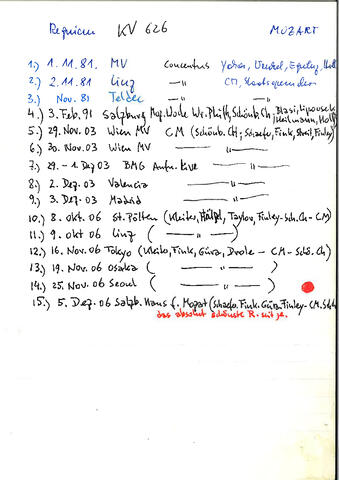 Requiem KV 626 MOZART
1.) 1.11.81. MV Concentus Yakar, Wenkel, Equiluz, Holl
2.) 2.11.81 Linz —〃— CM, Staatsopernchor
3.) Nov. 81 Teldec —〃— —〃—
4.) 3. Feb. 91 Salzburg Moz. Woche Wr. Phil, Schönb. Ch, Blasi, Lipovsek, Heilmann, Holl
5.) 29. Nov. 03 Wien MV CM (Schönb. Ch; Schaefer, Fink, Streit, Finley)
6.) 30. Nov. 03 Wien MV —〃—
7.) 29.–1. Dez 03 BMG Aufn. Live —〃—
8.) 2. Dez. 03 Valencia —〃—
9.) 3. Dez. 03 Madrid —〃—
10.) 8. Okt. 06 St. Pölten (Kleiter, Hölzl, Taylor, Finley-Sch. Ch – CM)
11.) 9. Okt 06 Linz ( —〃— )
12.) 16. Nov. 06 Tokyo (Kleiter, Fink, Güra, Drole – CM – Schö. Ch)
13.) 19. Nov. 06 Osaka ( —〃— )
14.) 25. Nov. 06 Seoul ( —〃— )
15.) 5. Dez. 06 Salzb. Haus f. Mozart (Schaefer, Fink, Güra, Finley – CM.
das absolut schönste R. seit je.